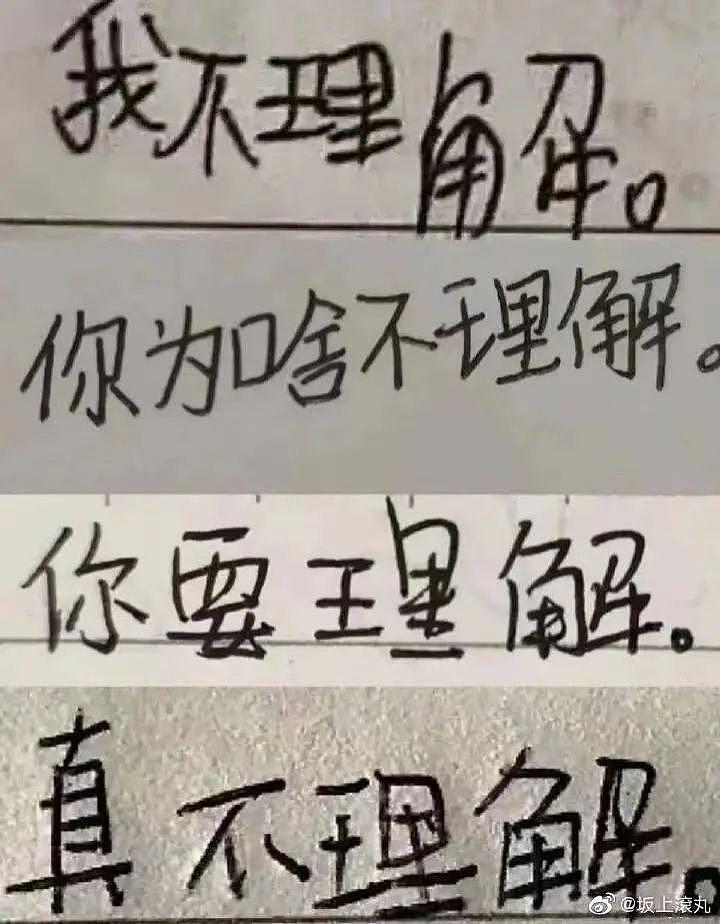 我不理解。
你为啥不理解。
你要理解。
真不理解。
@坂上滚丸